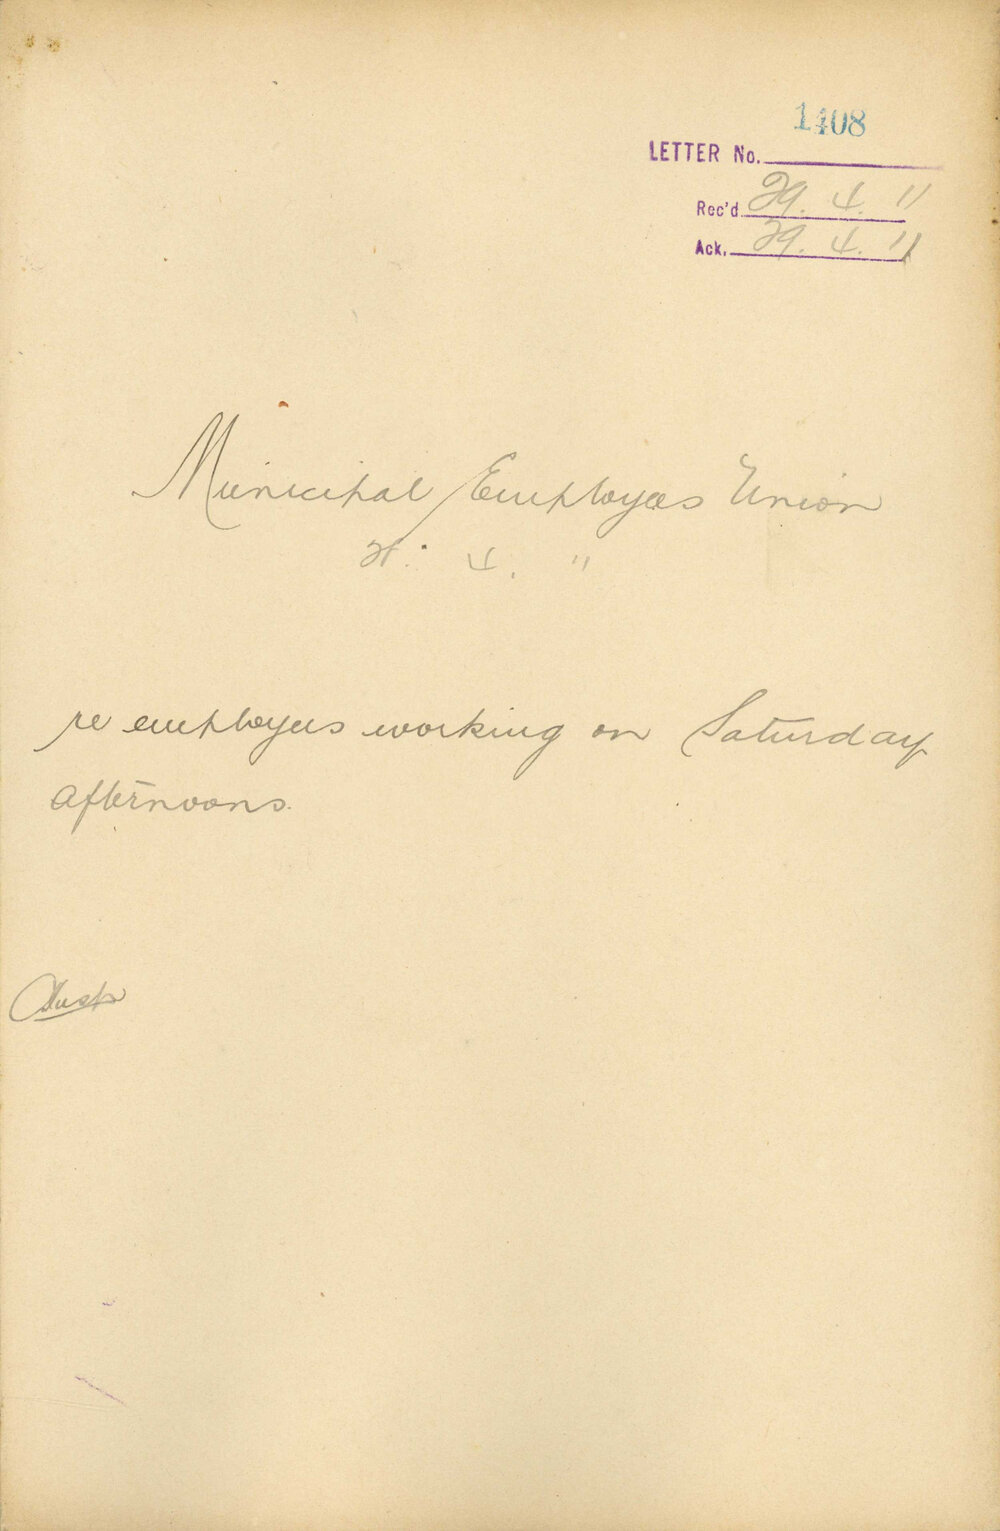 1408
LETTER No.
Rec'd 29. 4. 11
Ack. 29. 4. 11
Municipal Employees Union
4. 11
re employees working on Saturday
afternoons.